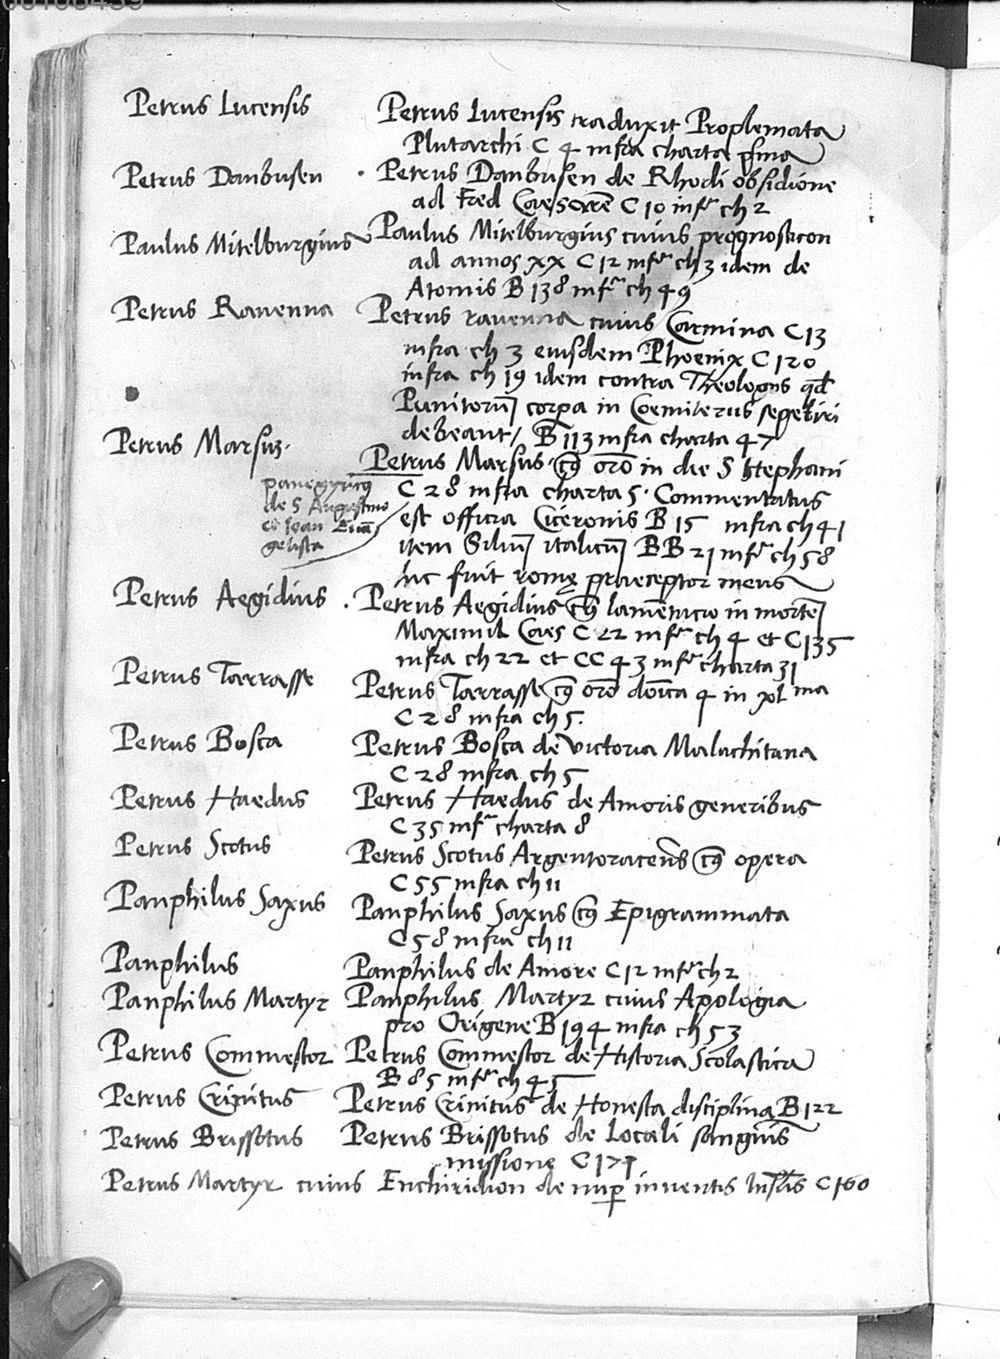 Petrus Lucensis Petrus Lucensis traduxit Proplemata
Plutarchi C 4 infra charta
Petrus Danbusen Petrus Danbusen de Rhodi obsidione
ad Fred Caesarē C 10 infr ch 2
Paulus Mitelburgius Paulus Mitelburgius cuius prognosticon
ad annos xx C 12 infr ch 3 idem de
Atomis B 138 infr ch 49
Petrus Ravenna Petrus ravenna cuius Carmina C 13
infra ch 3 eiusdem Phoenix C 120
infra ch 19 idem contra Theologos qd
Punitorū corpa in Coemiterus sepeliri
debeant / B 113 infra charta 47
Petrus Marsus Petrus Marsus cꝰ orō in die S Stephani
C 28 infra charta 5. Commentatus
panegyricꝰ
de S Augustino
Ioan Euā
gelista
est officia Ciceronis B 15 infra ch 41
item Siliū italicū BB 21 infr ch 58
hic fuit romę praeceptor meus
Petrus Aegidius Petrus Aegidius cꝰ lamētacio in mortē
Maximil Caes C 22 infr ch 4 et C 135
infra ch 22 et CC 43 infr charta 31
Petrus Tarrasse Petrus Tarrasse cꝰ orō dōica 4 in xl ma
C 28 infra ch 5.
Petrus Bosca Petrus Bosca de victoria Malachitana
C 28 infra ch 5
Petrus Haedus Petrus Haedus de Amoris generibus
C 35 infr charta 8
Petrus Scotus Petrus Scotus Argentoracēs cꝰ opera
C 55 infra ch 11
Panphilus Saxus Panphilus Saxus cꝰ Epigrammata
C 58 infra ch 11
Panphilus Panphilus de Amore C 12 infr ch 2
Panphilus Martyr Panphilus Martyr cuius Apologia
pro Origene B 194 infra ch 53
Petrus Commestor Petrus Commestor de Historia Scolastica
B 85 infr ch 45
Petrus Crinitus Petrus Crinitus de Honesta disciplina B 122
Petrus Brissotus Petrus Brissotus de Locali sanguīs
missione C 171
Petrus Martyr cuius Enchiridion de nup inventis Insulis C 160